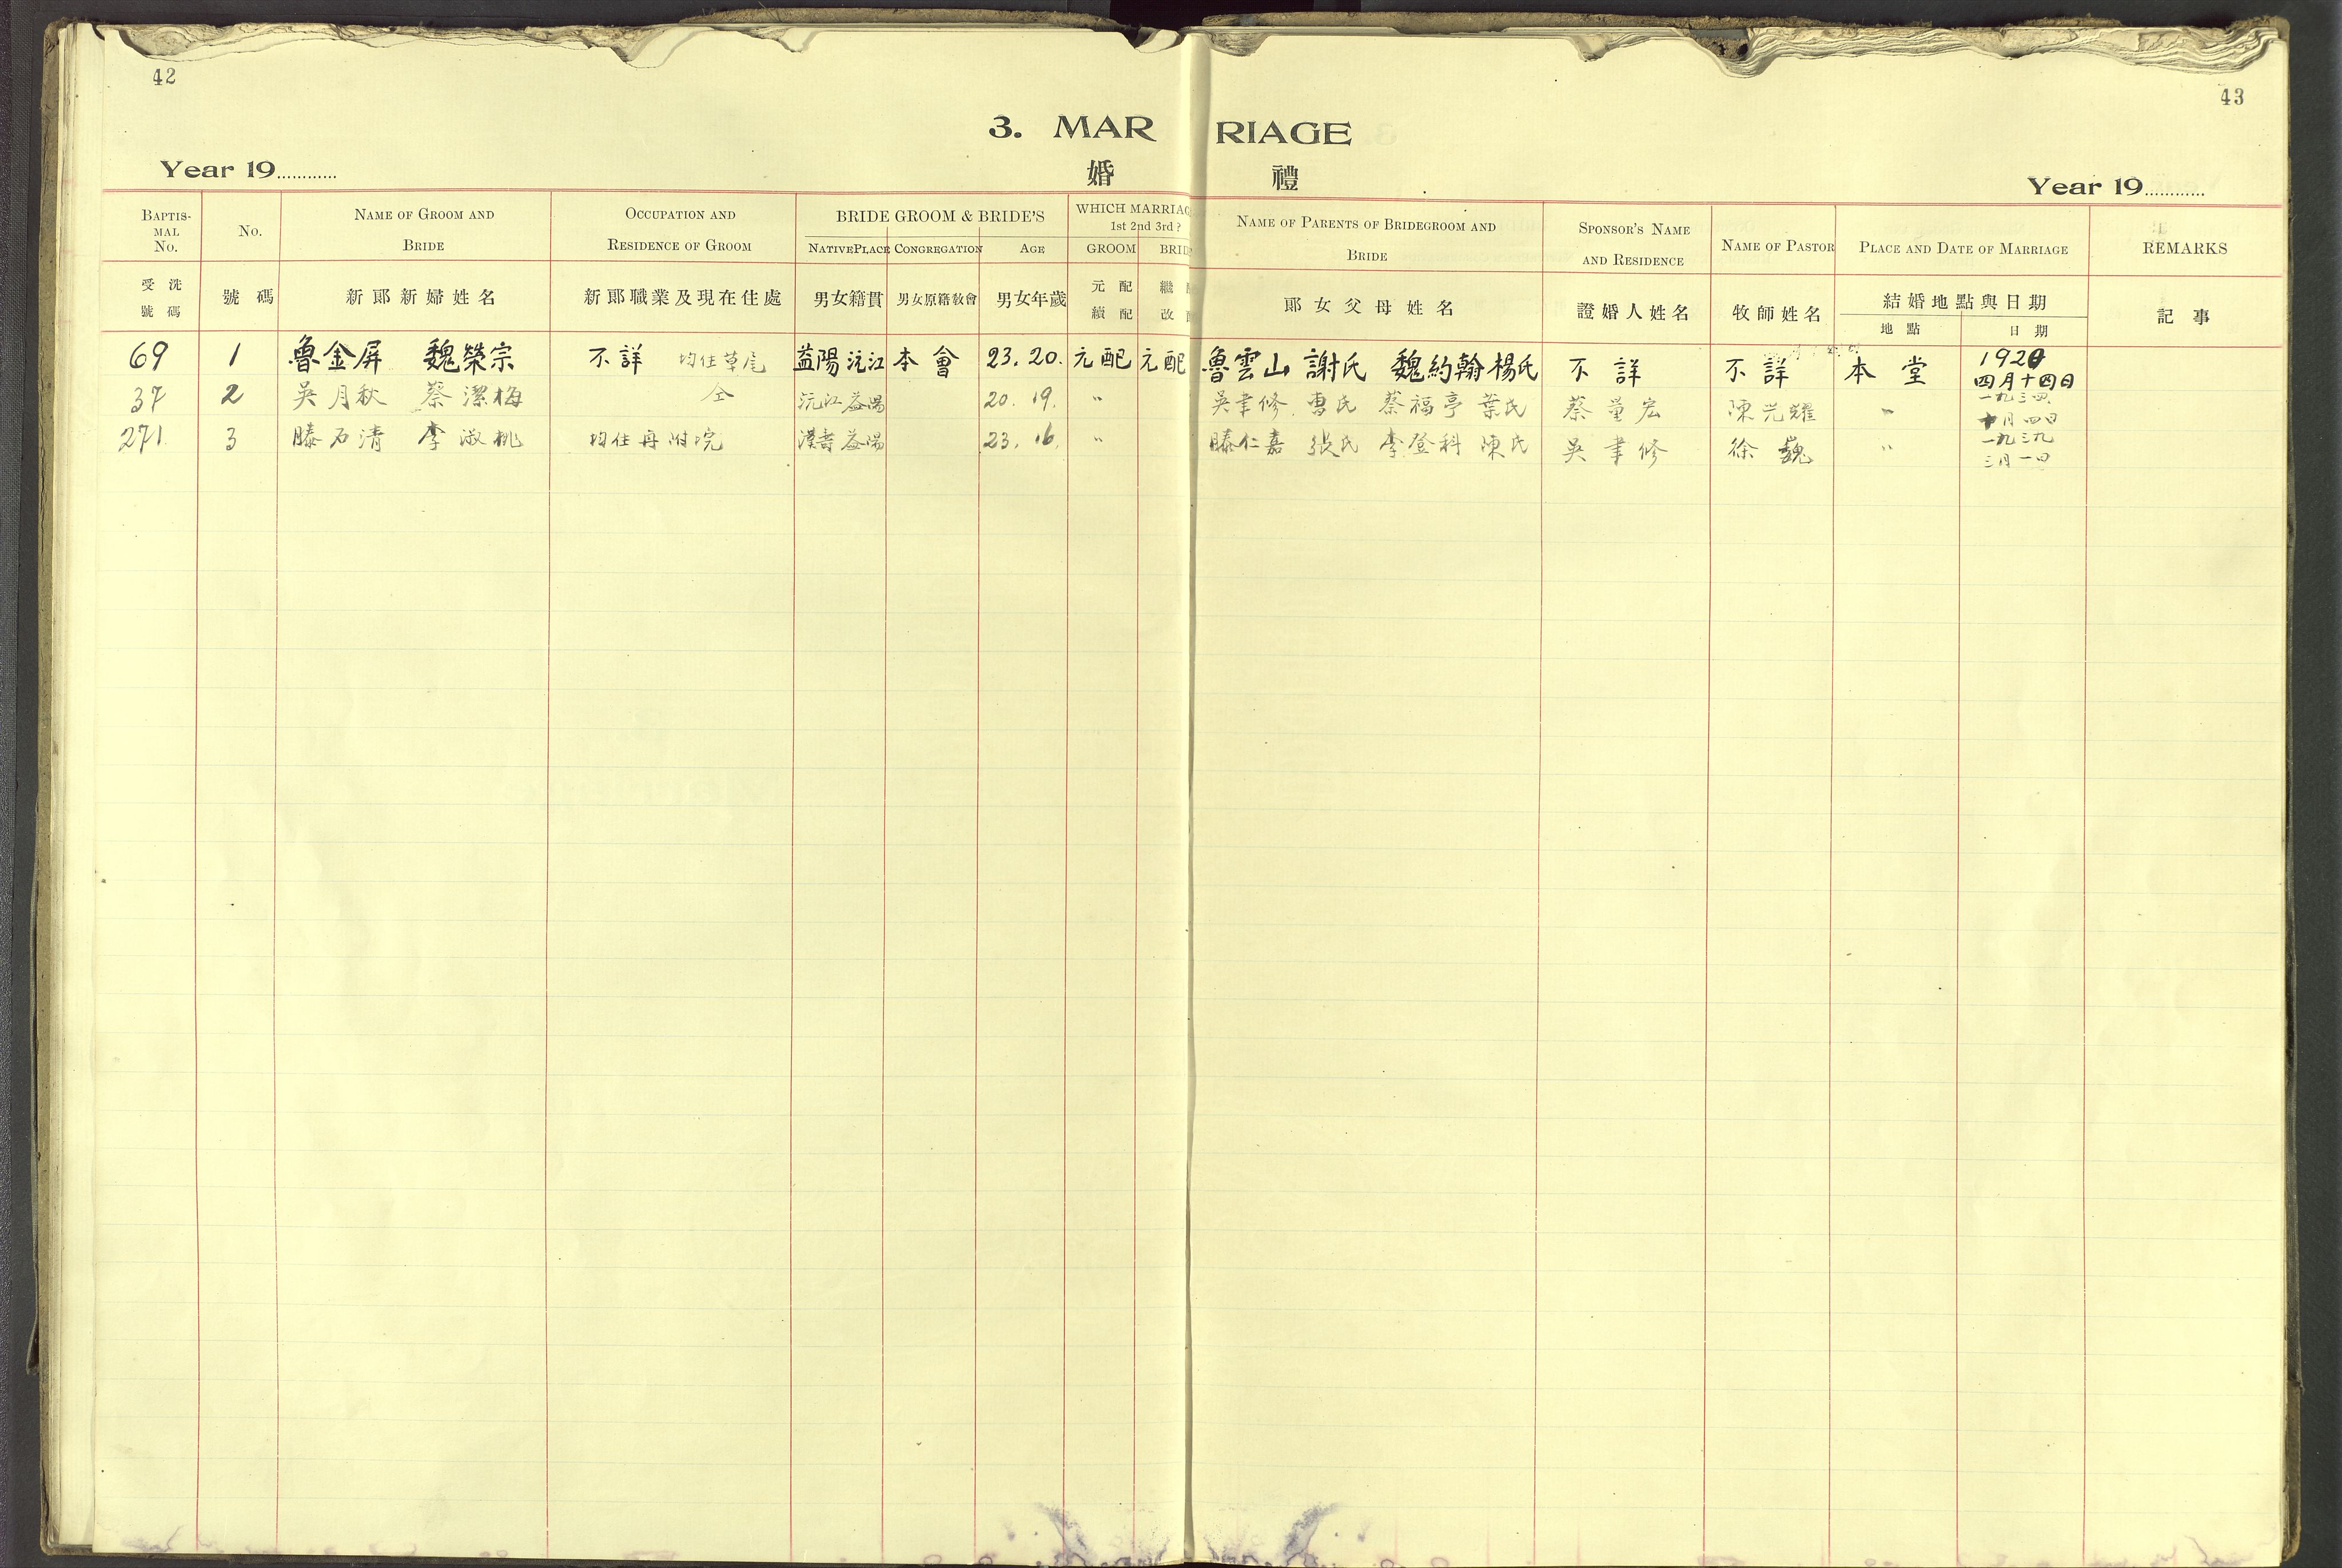 42
43
3. MAR RIAGE
Year 19............
婚 禮
Year 19............
BAPTIS-MAL No.
No.
NAME OF GROOM AND BRIDE
OCCUPATION AND RESIDENCE OF GROOM
BRIDE GROOM & BRIDE'S
NATIVE PLACE
CONGREGATION
AGE
WHICH MARRIAG
1st 2nd 3rd ?
GROOM
BRID
NAME OF PARENTS OF BRIDEGROOM AND BRIDE
SPONSOR'S NAME AND RESIDENCE
NAME OF PASTOR
PLACE AND DATE OF MARRIAGE
REMARKS
受洗號碼
號碼
新郞新婦姓名
新郞職業及現在住處
男女籍貫
男女原籍敎會
男女年歲
元配 續配
繼 改
郞女父母姓名
證婚人姓名
牧師姓名
結婚地點與日期
地點
日期
記事
69 1 魯金屏 魏榮宗 不詳 均住草尾 益陽 沅江 本會 23. 20. 元配 元配 魯雲山 謝氏 魏約翰 楊氏 不詳 不詳 本堂 1920 四月十四日
37 2 吳月秋 蔡潔梅 仝 沅江 益陽 20. 19. " 吳聿修 曹氏 蔡福亭 葉氏 蔡量宏 陳光耀 " 一九三四 十月四日
271. 3 滕石清 李淑桃 均住冊附垸 漢壽 益陽 23. 16. " 滕仁嘉 張氏 李登科 陳氏 吳聿修 徐巍 " 一九三九 三月一日